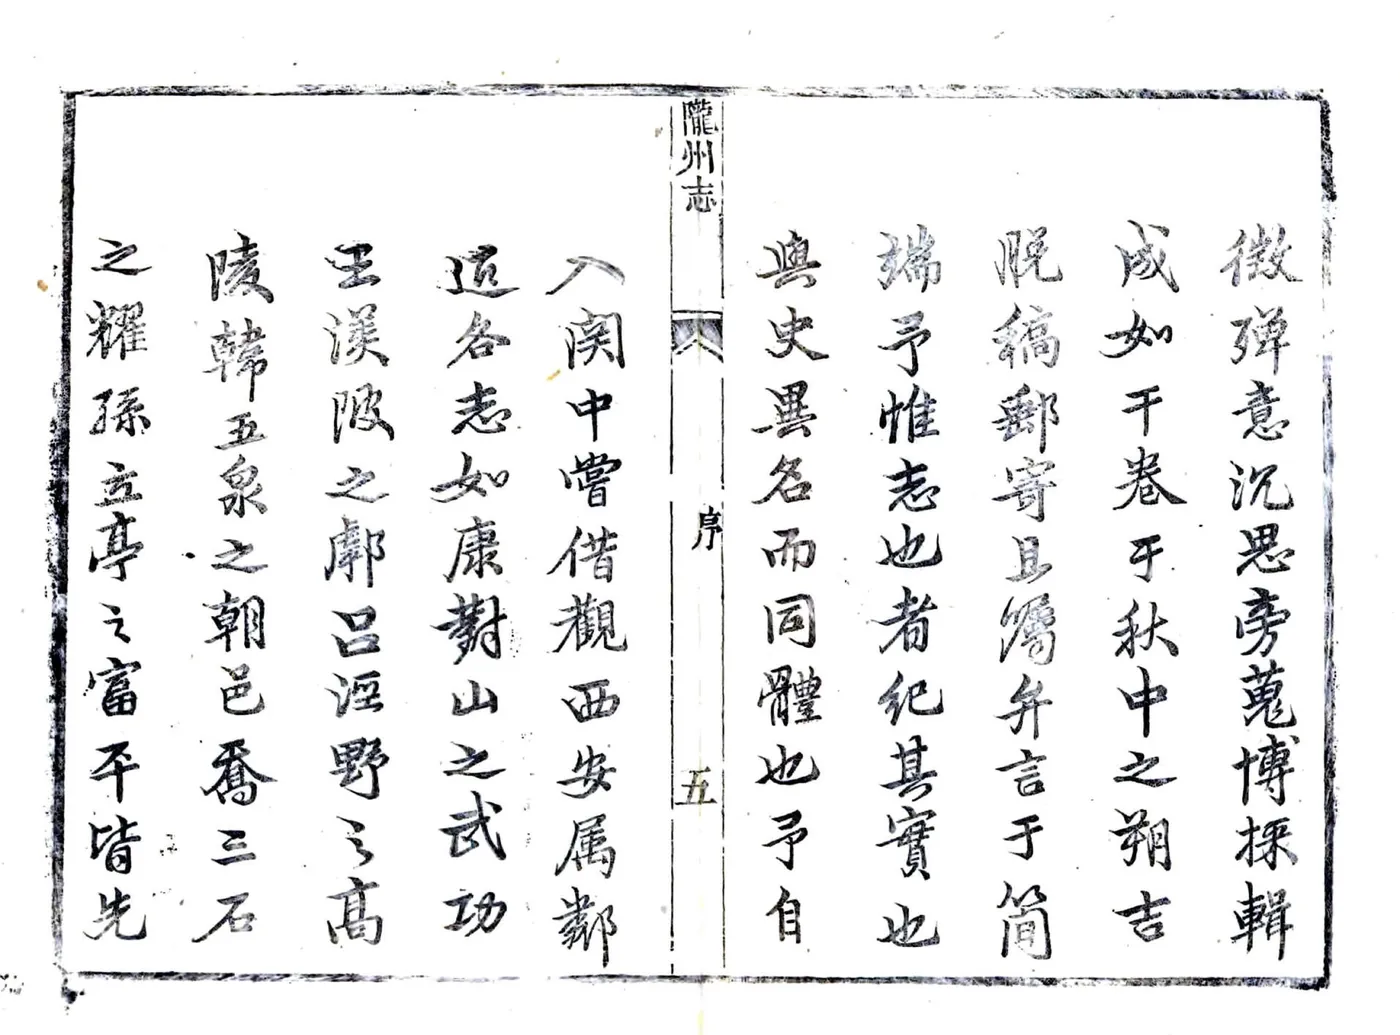 徴殫意沉思旁蒐博採輯
成如干卷于秋中之朔吉
脱稿郵寄且囑弁言于简
端予惟志也者纪其實也
與史異名而同體也予自
隴州志
序
五
入関中嘗借觀西安属鄰
近各志如康對山之武功
王渼陂之鄠呂涇野之高
陵韓五泉之朝邑喬三石
之耀孫立亭之富平皆先